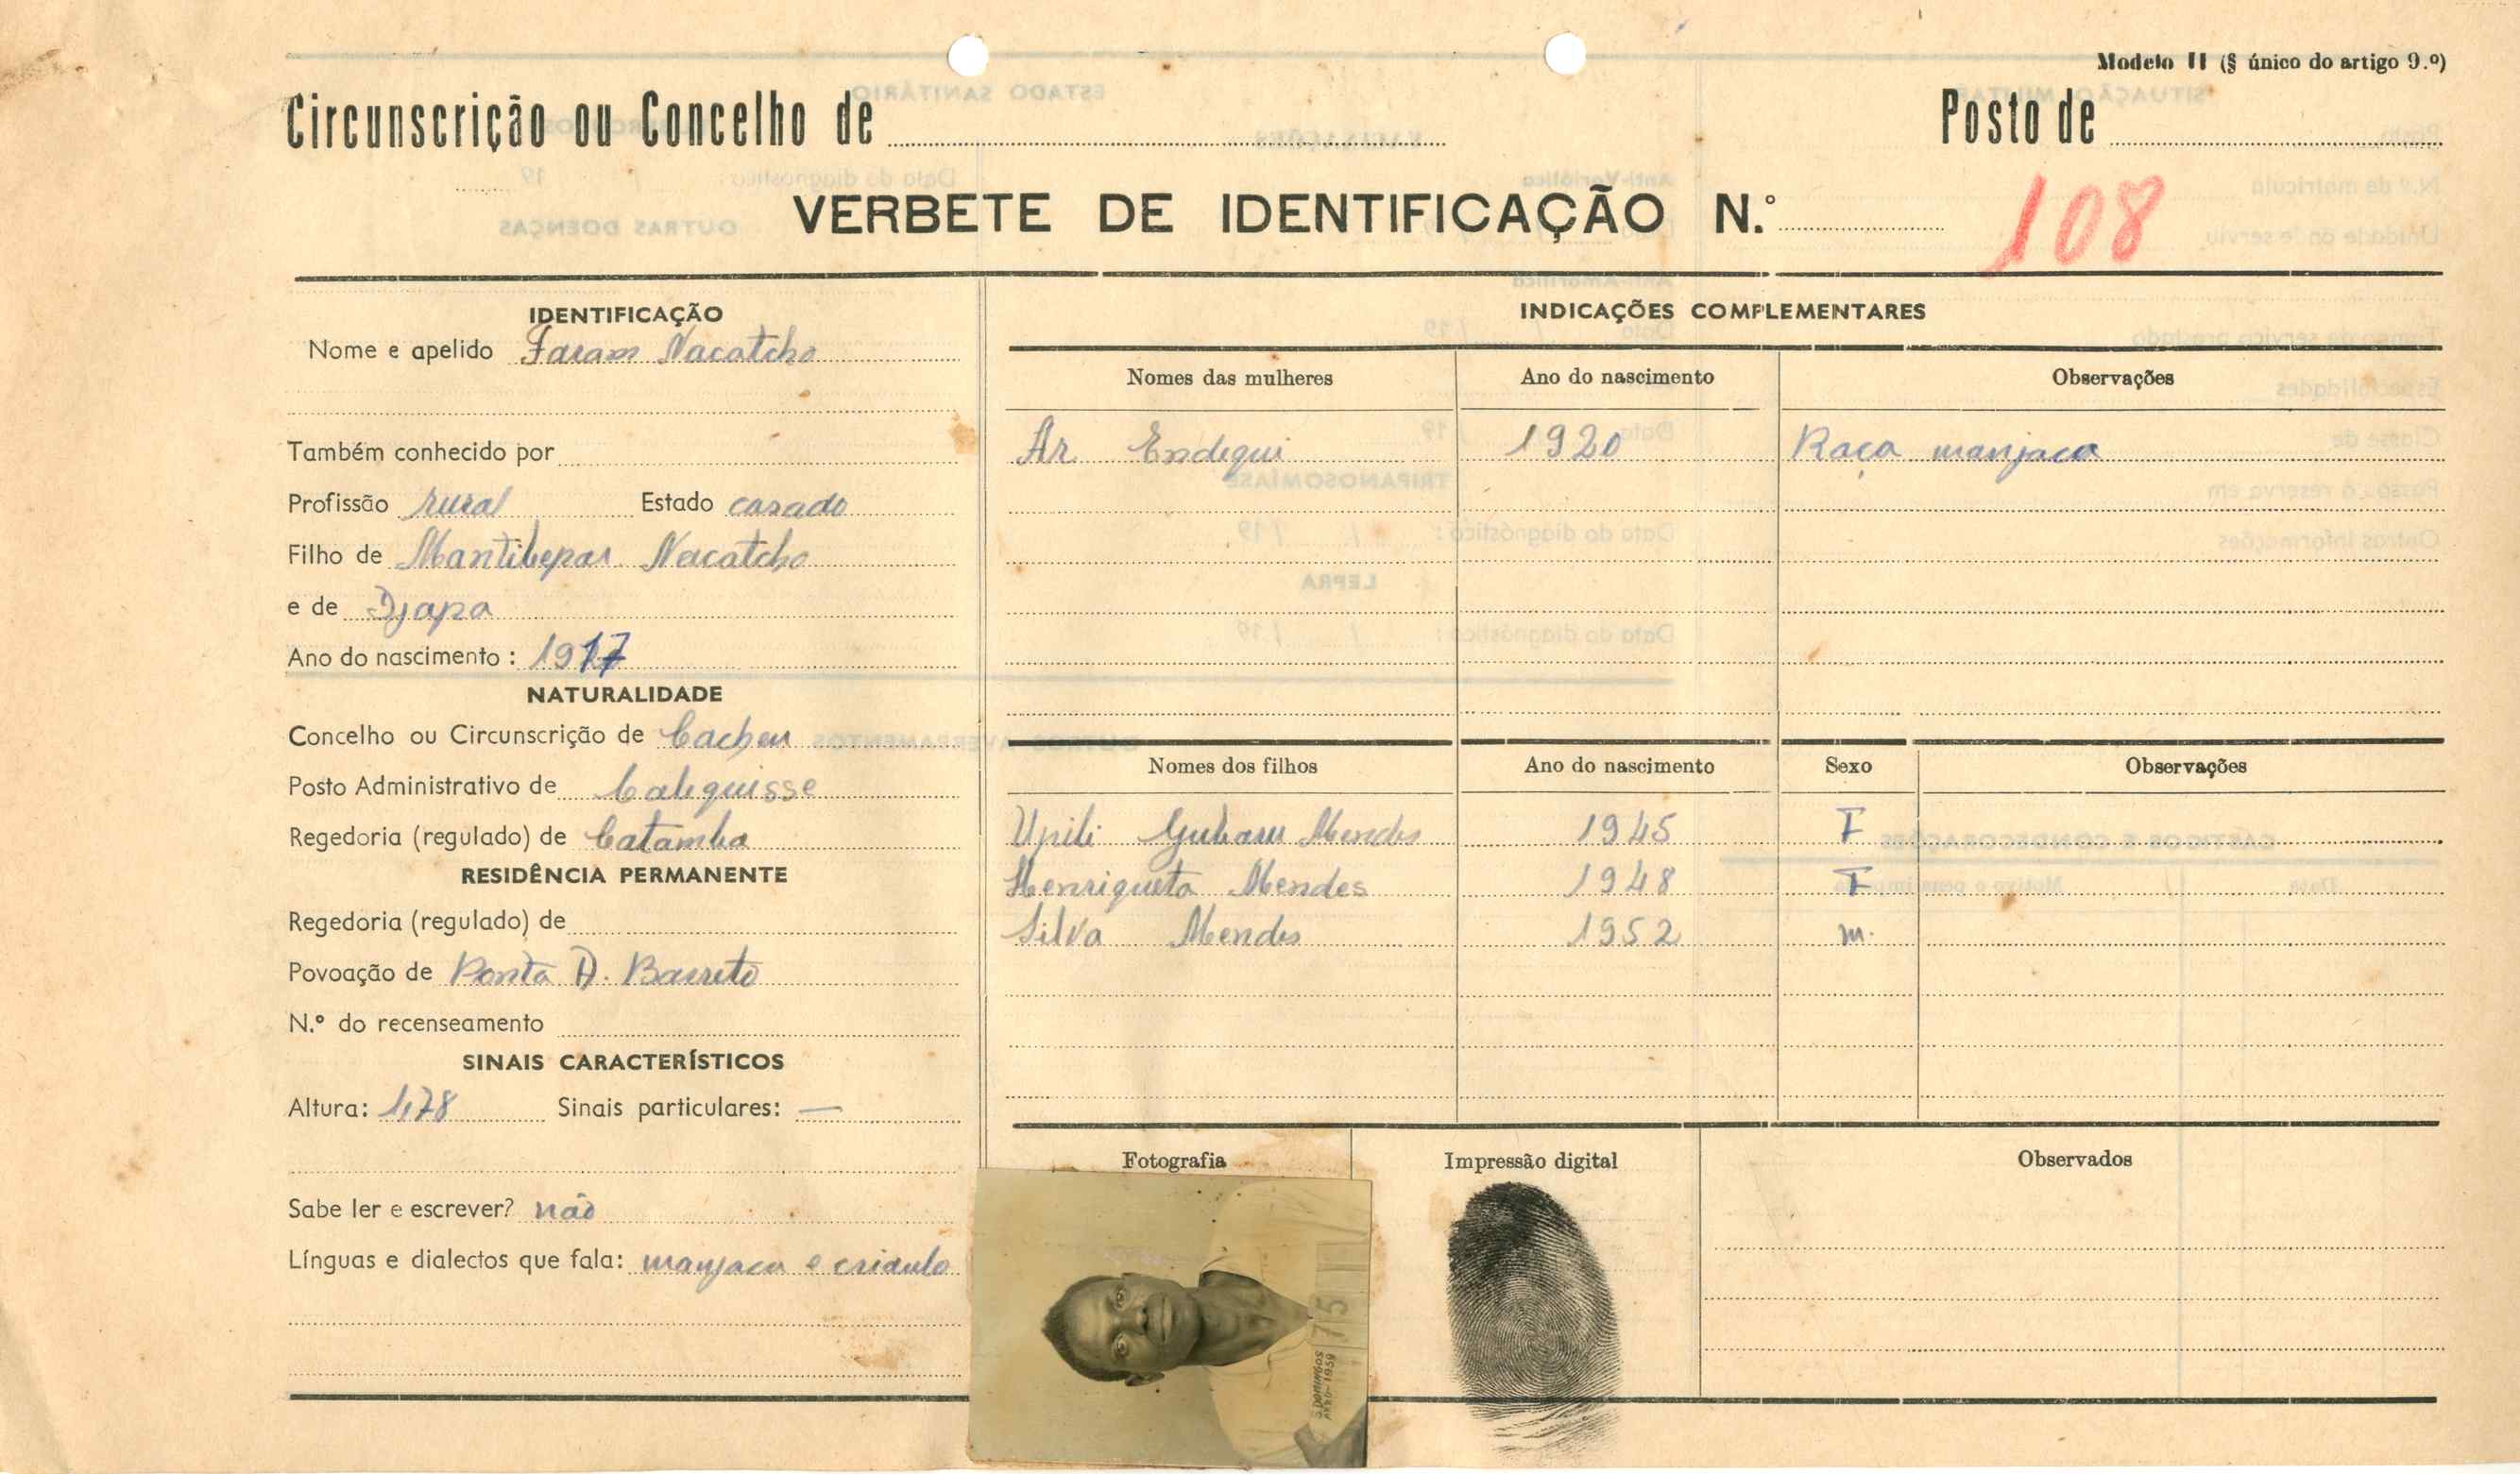 Modelo II (§ único do artigo 9.º)
Circunscrição ou Concelho de
Posto de
VERBETE DE IDENTIFICAÇÃO N.º
108
IDENTIFICAÇÃO
Nome e apelido Faram Nacatcho
Também conhecido por
Profissão rural Estado casado
Filho de Mantibepar Nacatcho
e de Djapa
Ano do nascimento : 1917
NATURALIDADE
Concelho ou Circunscrição de Cacheu
Posto Administrativo de Calequisse
Regedoria (regulado) de Catamba
RESIDÊNCIA PERMANENTE
Regedoria (regulado) de
Povoação de Ponta A. Barreto
N.º do recenseamento
SINAIS CARACTERÍSTICOS
Altura: 1,78 Sinais particulares: —
Sabe ler e escrever? não
Línguas e dialectos que fala: manjaco e crioulo
INDICAÇÕES COMPLEMENTARES
Nomes das mulheres Ano do nascimento Observações
Ar Endequi 1920 Raça manjaca
Nomes dos filhos Ano do nascimento Sexo Observações
Upili Mendes 1945 F
Henriqueta Mendes 1948 F
Silva Mendes 1952 m.
Fotografia Impressão digital Observados
S. DOMINGOS
1959